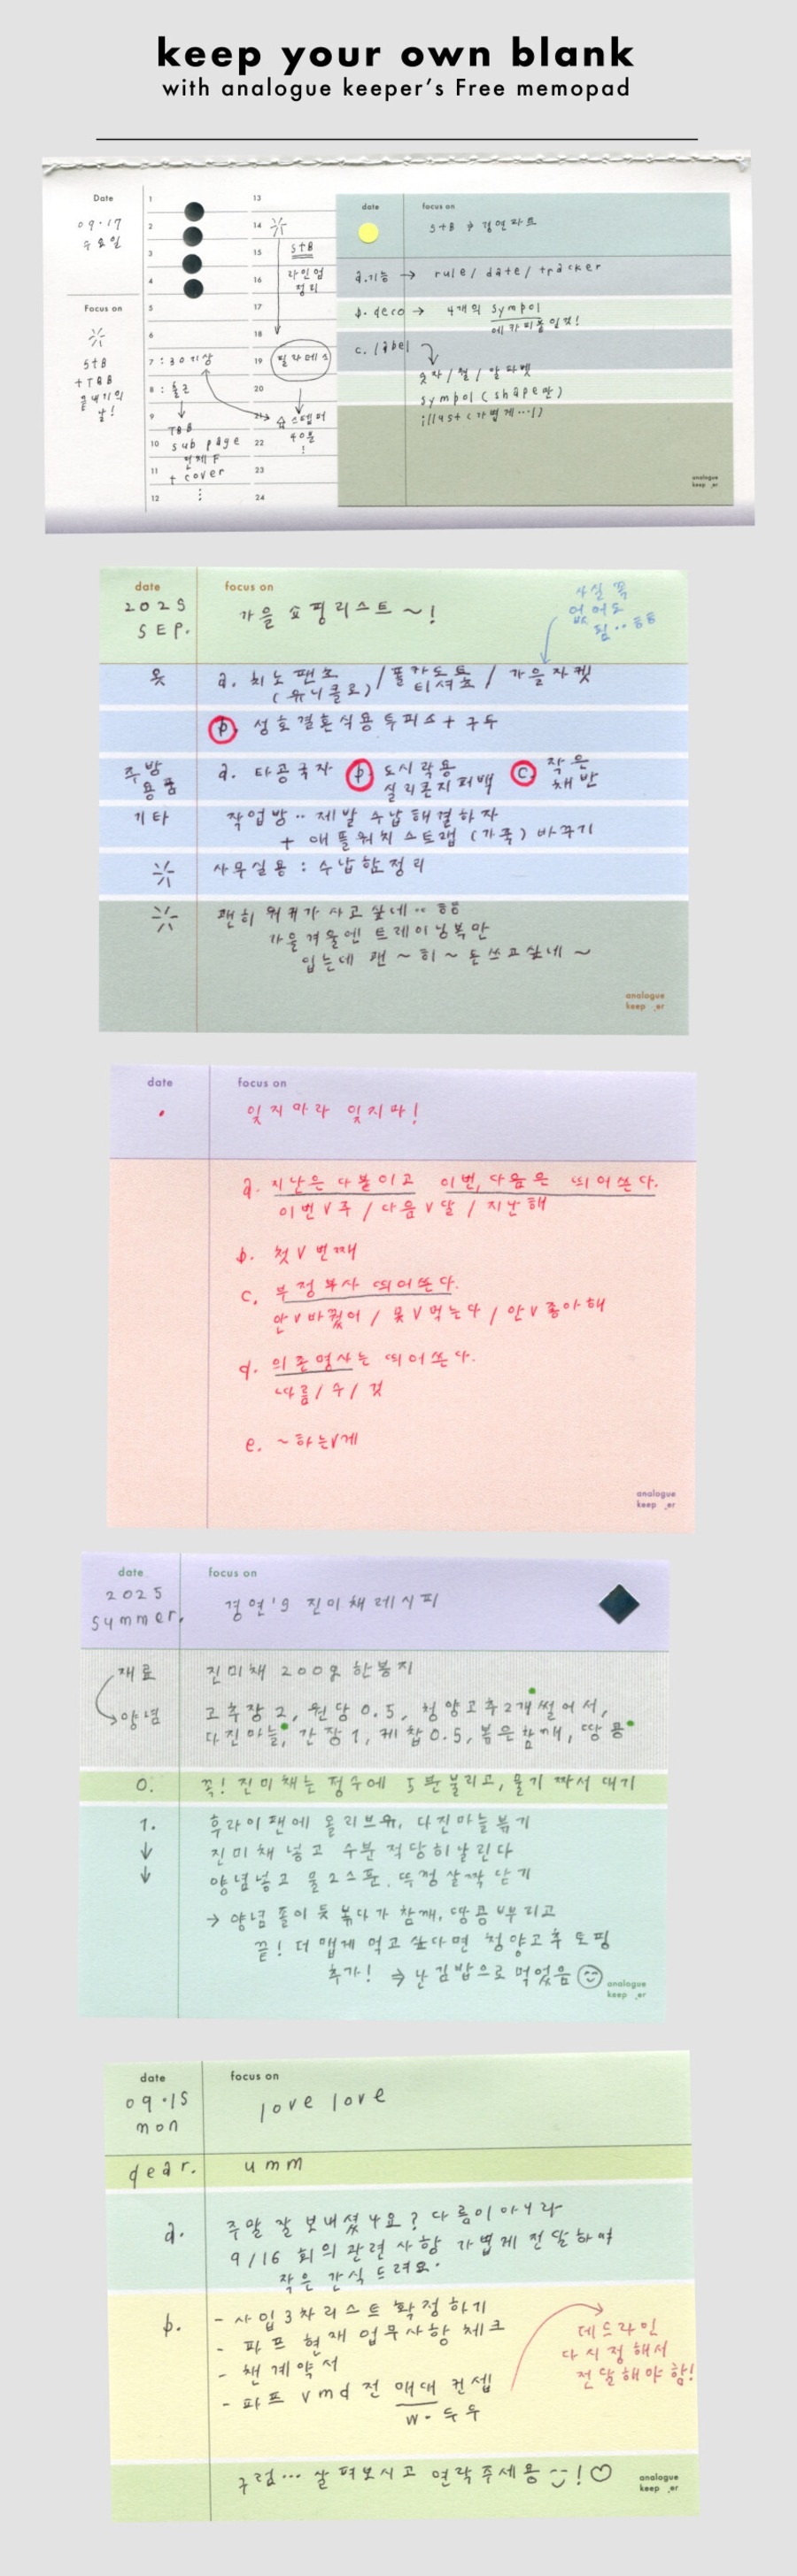 keep your own blank
with analogue keeper's Free memopad
Date
09.17
수요일
Focus on
S+B
+TBB
끝내기의
날!
1
2
3
4
5
6
7 : 30 기상
8 : 출근
9
TBB
10 sub page
언제F
11 + cover
12
13
14
S+B
15
라인업
16 정리
17
18
19 필라테스
20
21
22 40분
!
23
24
date
focus on
S+B → 경연파트
a. 기능 → rule / date / tracker
b. deco → 4개의 sympol
c. label
숫자 / 월 / 알파벳
sympol (shape만)
illust (가볍게…!)
analogue
keep er
date
focus on
2025
SEP.
가을 쇼핑리스트 ~!
사실 꼭
없어도
됨.. ㅎㅎ
옷
a. 치노 팬츠 (유니클로) / 폴카도트 티셔츠 / 가을자켓
b. 성호결혼식용 투피스 + 구두
주방
용품
a. 타공국자 b. 도시락용 실리콘지퍼백 c. 작은 채반
기타
작업방.. 제발 수납 해결하자
+ 애플워치 스트랩 (가죽) 바꾸기
사무실용 : 수납함정리
괜히 워커가 사고 싶네.. ㅎㅎ
가을겨울엔 트레이닝복만
입는데 괜~히~ 돈쓰고싶네~
analogue
keep er
date
focus on
잊지마라 잊지마!
a. 지난은 다 붙이고 이번, 다음은 띄어쓴다.
이번∨주 / 다음∨달 / 지난해
b. 첫∨번째
c. 부정부사 띄어쓴다.
안∨바꿨어 / 못∨먹는다 / 안∨좋아해
d. 의존명사는 띄어쓴다.
따름 / 수 / 것
e. ~하는∨게
analogue
keep er
date
focus on
2025
summer.
경연's 진미채레시피
재료
진미채 200g 한봉지
양념
고추장2, 원당0.5, 청양고추2개 썰어서,
다진마늘, 간장1, 케찹0.5, 볶은참깨, 땅콩
0.
꼭! 진미채는 정수에 5분 불리고, 물기 짜서 대기
1.
후라이팬에 올리브유, 다진마늘볶기
진미채 넣고 수분 적당히날린다
양념넣고 물2스푼, 뚜껑살짝 닫기
→ 양념 졸이듯 볶다가 참깨, 땅콩 뿌리고
끝! 더 맵게 먹고 싶다면 청양고추 토핑
추가! → 난 김밥으로 먹었음
analogue
keep er
date
focus on
09.15
mon
love love
dear.
umm
a.
주말 잘 보내셨나요? 다름이 아니라
9/16 회의 관련 사항 가볍게 전달하며
작은 간식 드려요.
b.
- 사입 3차 리스트 확정하기
- 파프 현재 업무사항 체크
- 챈 계약서
- 파프 vmd 전 매대 컨셉
w. 두두
데드라인
다시정해서
전달해야함!
그럼… 살펴보시고 연락주세용 !♡
analogue
keep er